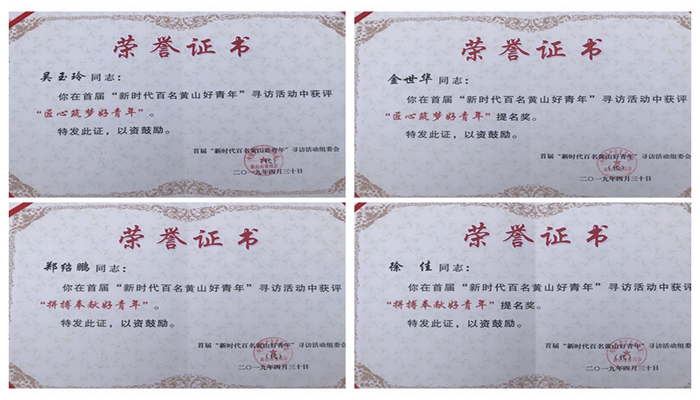 荣誉证书
吴玉玲 同志：
你在首届“新时代百名黄山好青年”寻访活动中获评
“匠心筑梦好青年”。
特发此证，以资鼓励。
首届“新时代百名黄山好青年”寻访活动组委会
（代）
二〇一九年四月三十日
荣誉证书
金世华 同志：
你在首届“新时代百名黄山好青年”寻访活动中获评
“匠心筑梦好青年”提名奖。
特发此证，以资鼓励。
首届“新时代百名黄山好青年”寻访活动组委会
（代）
二〇一九年四月三十日
荣誉证书
郑绍鹏 同志：
你在首届“新时代百名黄山好青年”寻访活动中获评
“拼搏奉献好青年”。
特发此证，以资鼓励。
首届“新时代百名黄山好青年”寻访活动组委会
（代）
二〇一九年四月三十日
荣誉证书
徐 佳 同志：
你在首届“新时代百名黄山好青年”寻访活动中获评
“拼搏奉献好青年”提名奖。
特发此证，以资鼓励。
首届“新时代百名黄山好青年”寻访活动组委会
（代）
二〇一九年四月三十日